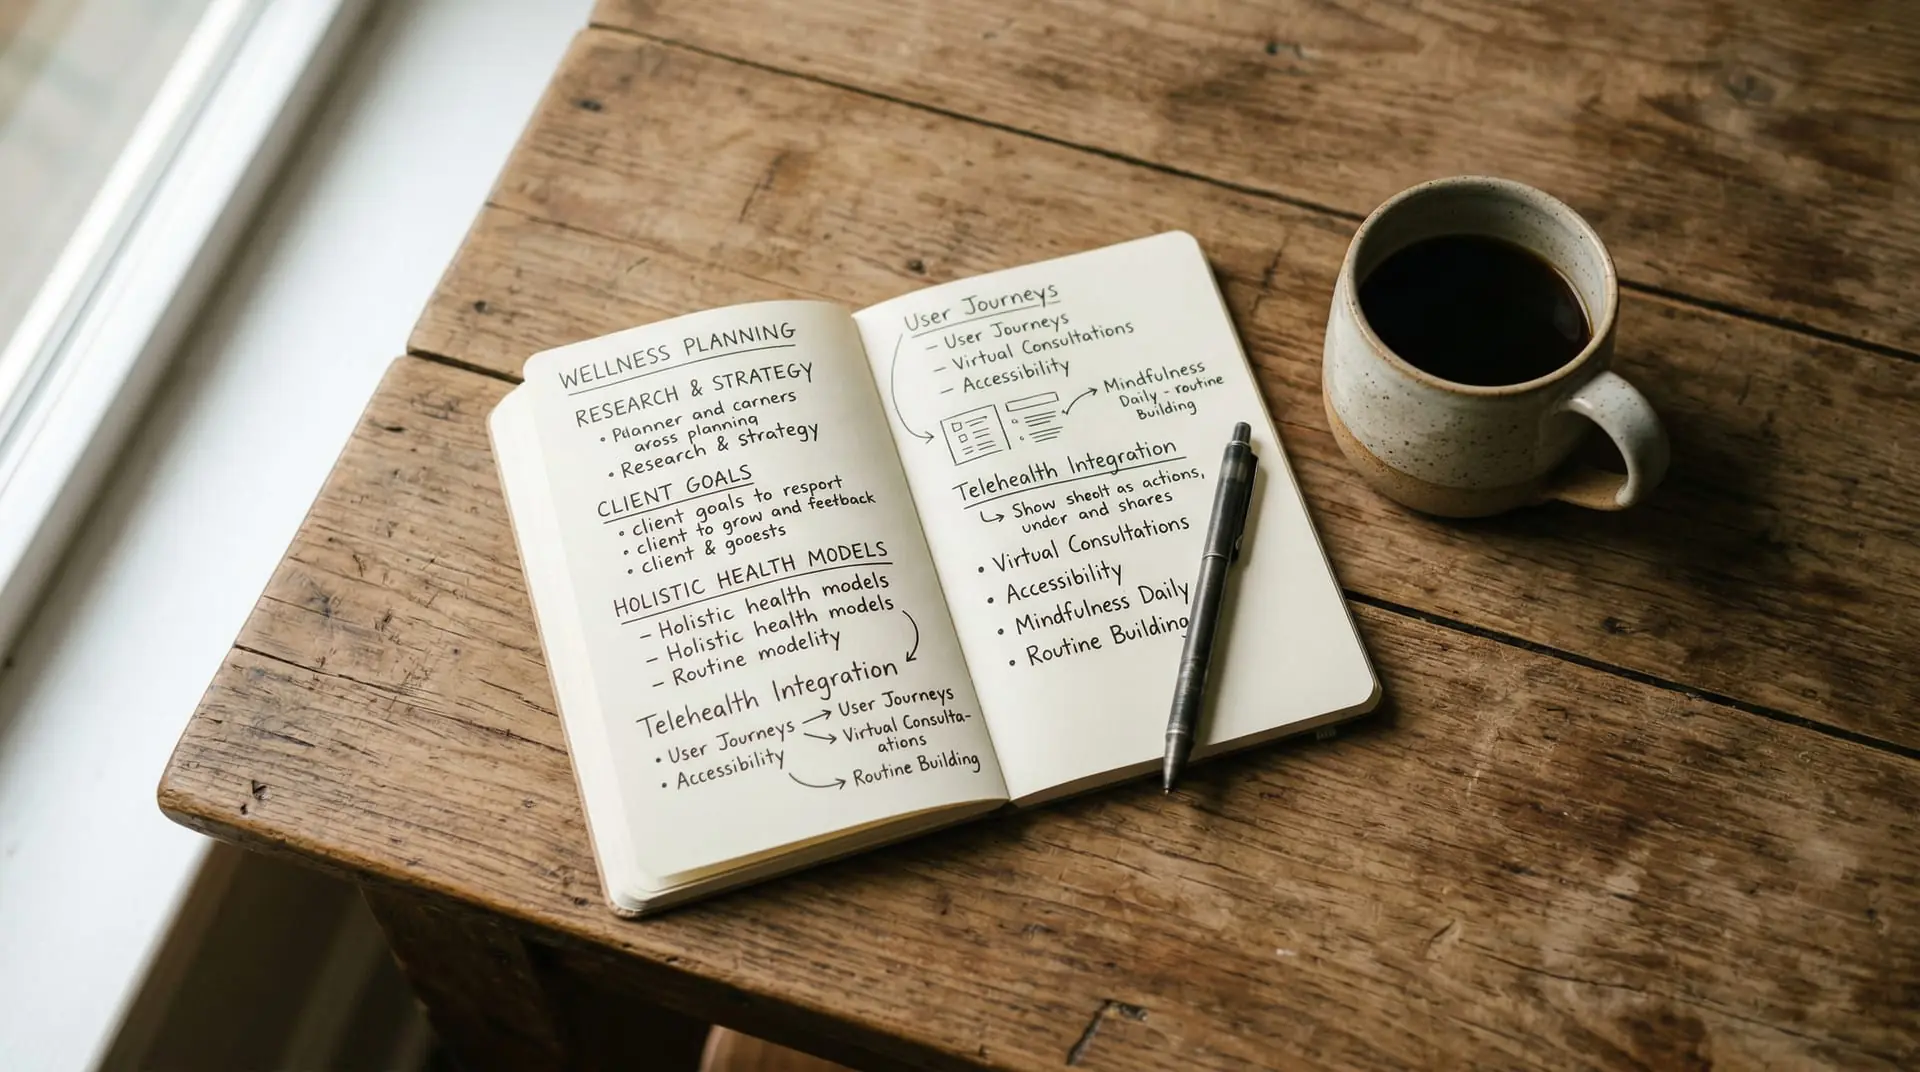 WELLNESS PLANNING
RESEARCH & STRATEGY
• Pdanner and carners
aross planning
• Research & strategy
CLIENT GOALS
• client goals to resport
• client to grow and feetback
• client & gooests
HOLISTIC HEALTH MODELS
– Holistic health models
– Holistic health models
– Routine modelity
Telehealth Integration
• User Journeys → User Journeys
→ Virtual Consulta-
ations
• Accessibility → Routine Building
User Journeys
– User Journeys
– Virtual Consultations
– Accessibility
Mindfulness
Daily - routine
Building
Telehealth Integration
↳ Show sheolt as actions,
under and shares
• Virtual Consultations
• Accessibility
• Mindfulness Daily
• Routine Building